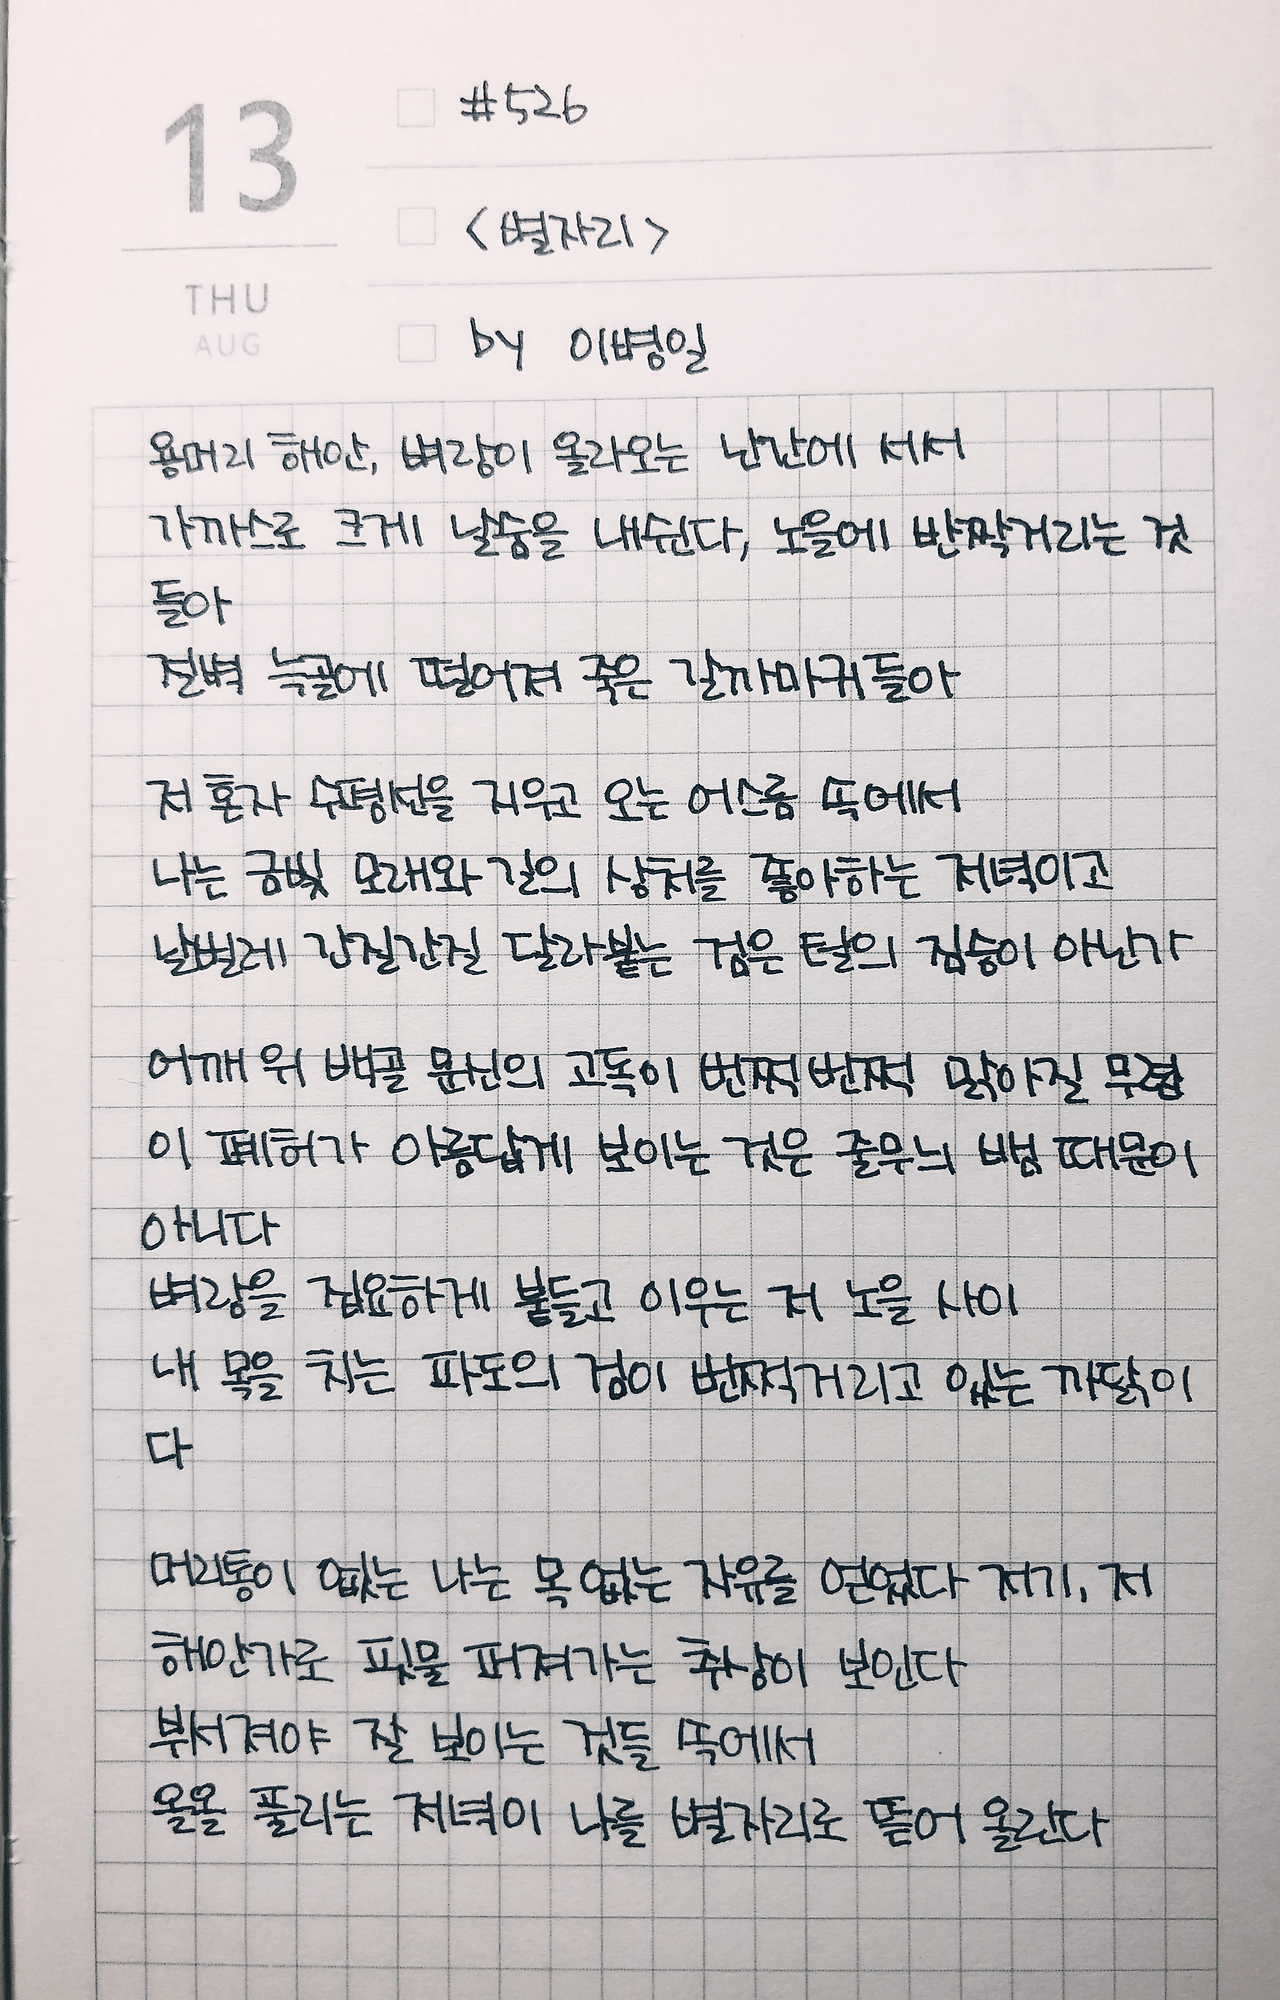 13
THU
AUG
#526
<별자리>
by 이병일
용머리 해안, 벼랑이 올라오는 난간에 서서
가까스로 크게 날숨을 내쉰다, 노을에 반짝거리는 것
들아
절벽 늑골에 떨어져 죽은 갈까마귀들아
저 혼자 수평선을 지우고 오는 어스름 쪽에서
나는 금빛 모래와 결의 상처를 좋아하는 저녁이고
날벌레 간질간질 달라붙는 검은 털의 짐승이 아닌가
어깨 위 백골 문신의 고독이 번쩍번쩍 맑아질 무렵
이 폐허가 아름답게 보이는 것은 줄무늬 뱀 때문이
아니다
벼랑을 집요하게 붙들고 이우는 저 노을 사이
내 목을 치는 파도의 검이 번쩍거리고 있는 까닭이
다
머리통이 없는 나는 목 없는 자유를 얻었다 저기, 저
해안가로 핏물 퍼져가는 추상이 보인다
부서져야 잘 보이는 것들 쪽에서
올올 풀리는 저녁이 나를 별자리로 뜯어 올린다